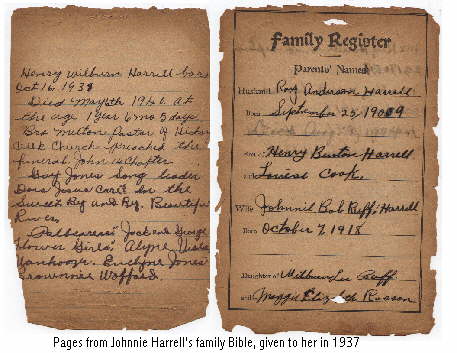 Henry Wilburn Harrell born
Oct 16 1938
Died May At
the age 1 year 6 mo 5 days
Bro Milton Pastor of
Creek Church preached the
funeral John 14 Chapter
Guy Jones Song leader
Does Jesus Care? In the
Sweet By and By. Beautiful
River.
Palbearers Jack and George
Flower Girls: Alyne Viola
Evelyne Jones
Wofford.
Family Register
Parents' Names
Husband Roy Anderson Harrell
Born September 25, 1909
Son of Henry Burton Harrell
and Louise Cook.
Wife Johnnie Bob Ruff. Harrell
Born October 7, 1918
Daughter of Wilburn Lee Ruff
and Maggie Elizabeth
Pages from Johnnie Harrell's family Bible, given to her in 1937